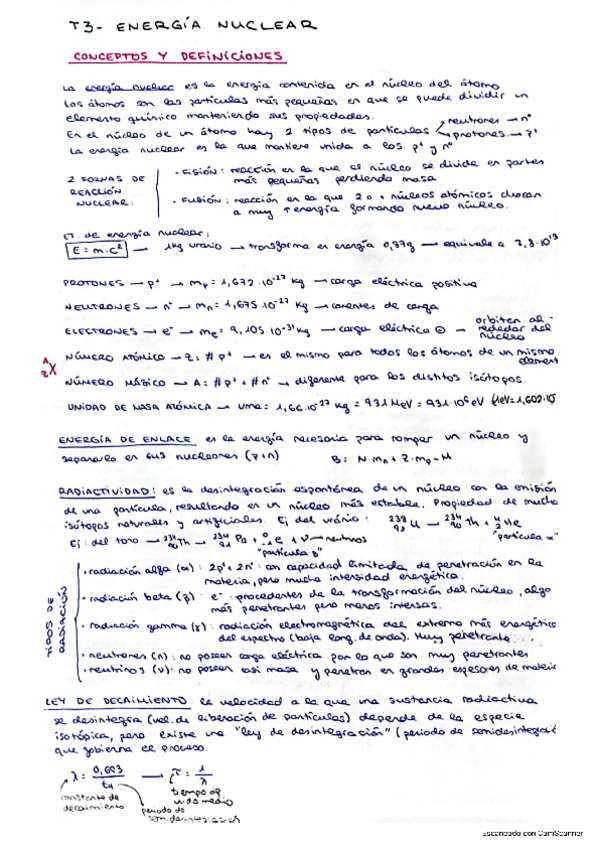 T3- ENERGÍA NUCLEAR
CONCEPTOS Y DEFINICIONES
La energía nuclear es la energía contenida en el núcleo del átomo
Los átomos son las partículas más pequeñas en que se puede dividir un
elemento químico manteniendo sus propiedades.
En el núcleo de un átomo hay 2 tipos de partículas → neutrones → n°
→ protones → p⁺
La energía nuclear es la que mantiene unida a los p⁺ y n°
2 FORMAS DE REACCIÓN NUCLEAR:
· FISIÓN: reacción en la que el núcleo se divide en partes
más pequeñas perdiendo masa
· FUSIÓN: reacción en la que 2 o + núcleos atómicos chocan
a muy ↑ energía formando nuevo núcleo.
de energía nuclear:
E = m·c² → 1kg uranio → transforma en energía 0,87g → equivale a 7,8·10¹³
PROTONES → p⁺ → mp = 1,672·10⁻²⁷ kg → carga eléctrica positiva
NEUTRONES → n° → mn = 1,675·10⁻²⁷ kg → carentes de carga
ELECTRONES → e⁻ → me = 9,105·10⁻³¹ kg → carga eléctrica ⊖ → orbitan alrededor del núcleo
A Z X
NÚMERO ATÓMICO → Z: # p⁺ → es el mismo para todos los átomos de un mismo element
NÚMERO MÁSICO → A: # p⁺ + # n° → diferente para los distitos isótopos.
UNIDAD DE MASA ATÓMICA → uma: 1,66·10⁻²⁷ kg = 931 MeV = 931·10⁶ eV 1eV = 1,602·10
ENERGÍA DE ENLACE es la energía necesaria para romper un núcleo y
separarlo en sus nucleones (p+n) B = N·mn + Z·mp - M
RADIACTIVIDAD: es la desintegración espontánea de un núcleo con la emisión
de una partícula, resultando en un núcleo más estable. Propiedad de mucho
isótopos naturales y artificiales. Ej del uranio: ²³⁸₉₂U → ²³⁴₉₀Th + ⁴₂He
"partícula α"
Ej: del torio → ²³⁴₉₀Th → ²³⁴₉₁Pa + ⁰₋₁e + ν → neutrinos
"partícula β"
TIPOS DE RADIACIÓN
· radiación alfa (α): 2p⁺ 2n° con capacidad limitada de penetración en la
materia, pero mucha intensidad energética.
· radiación beta (β): e⁻ procedentes de la transformación del núcleo, algo
más penetrantes pero menos intensas.
· radiación gamma (γ): radiación electromagnética del extremo más energético
del espectro (baja long. de onda). Muy penetrante.
· neutrones (n): no poseen carga eléctrica por lo que son muy penetrantes
· neutrinos (ν): no poseen casi masa y penetran en grandes espesores de mater
LEY DE DECAIMIENTO la velocidad a la que una sustancia radiactiva
se desintegra (vel. de liberación de partículas) depende de la especie
isotópica, pero existe una "ley de desintegración" (periodo de semidesintegraci
que gobierna el proceso.
λ = 0,693 / t½ → τ = 1/λ
constante de decaimiento
periodo de semidesintegración
tiempo de vida medio
Escaneado con CamScanner